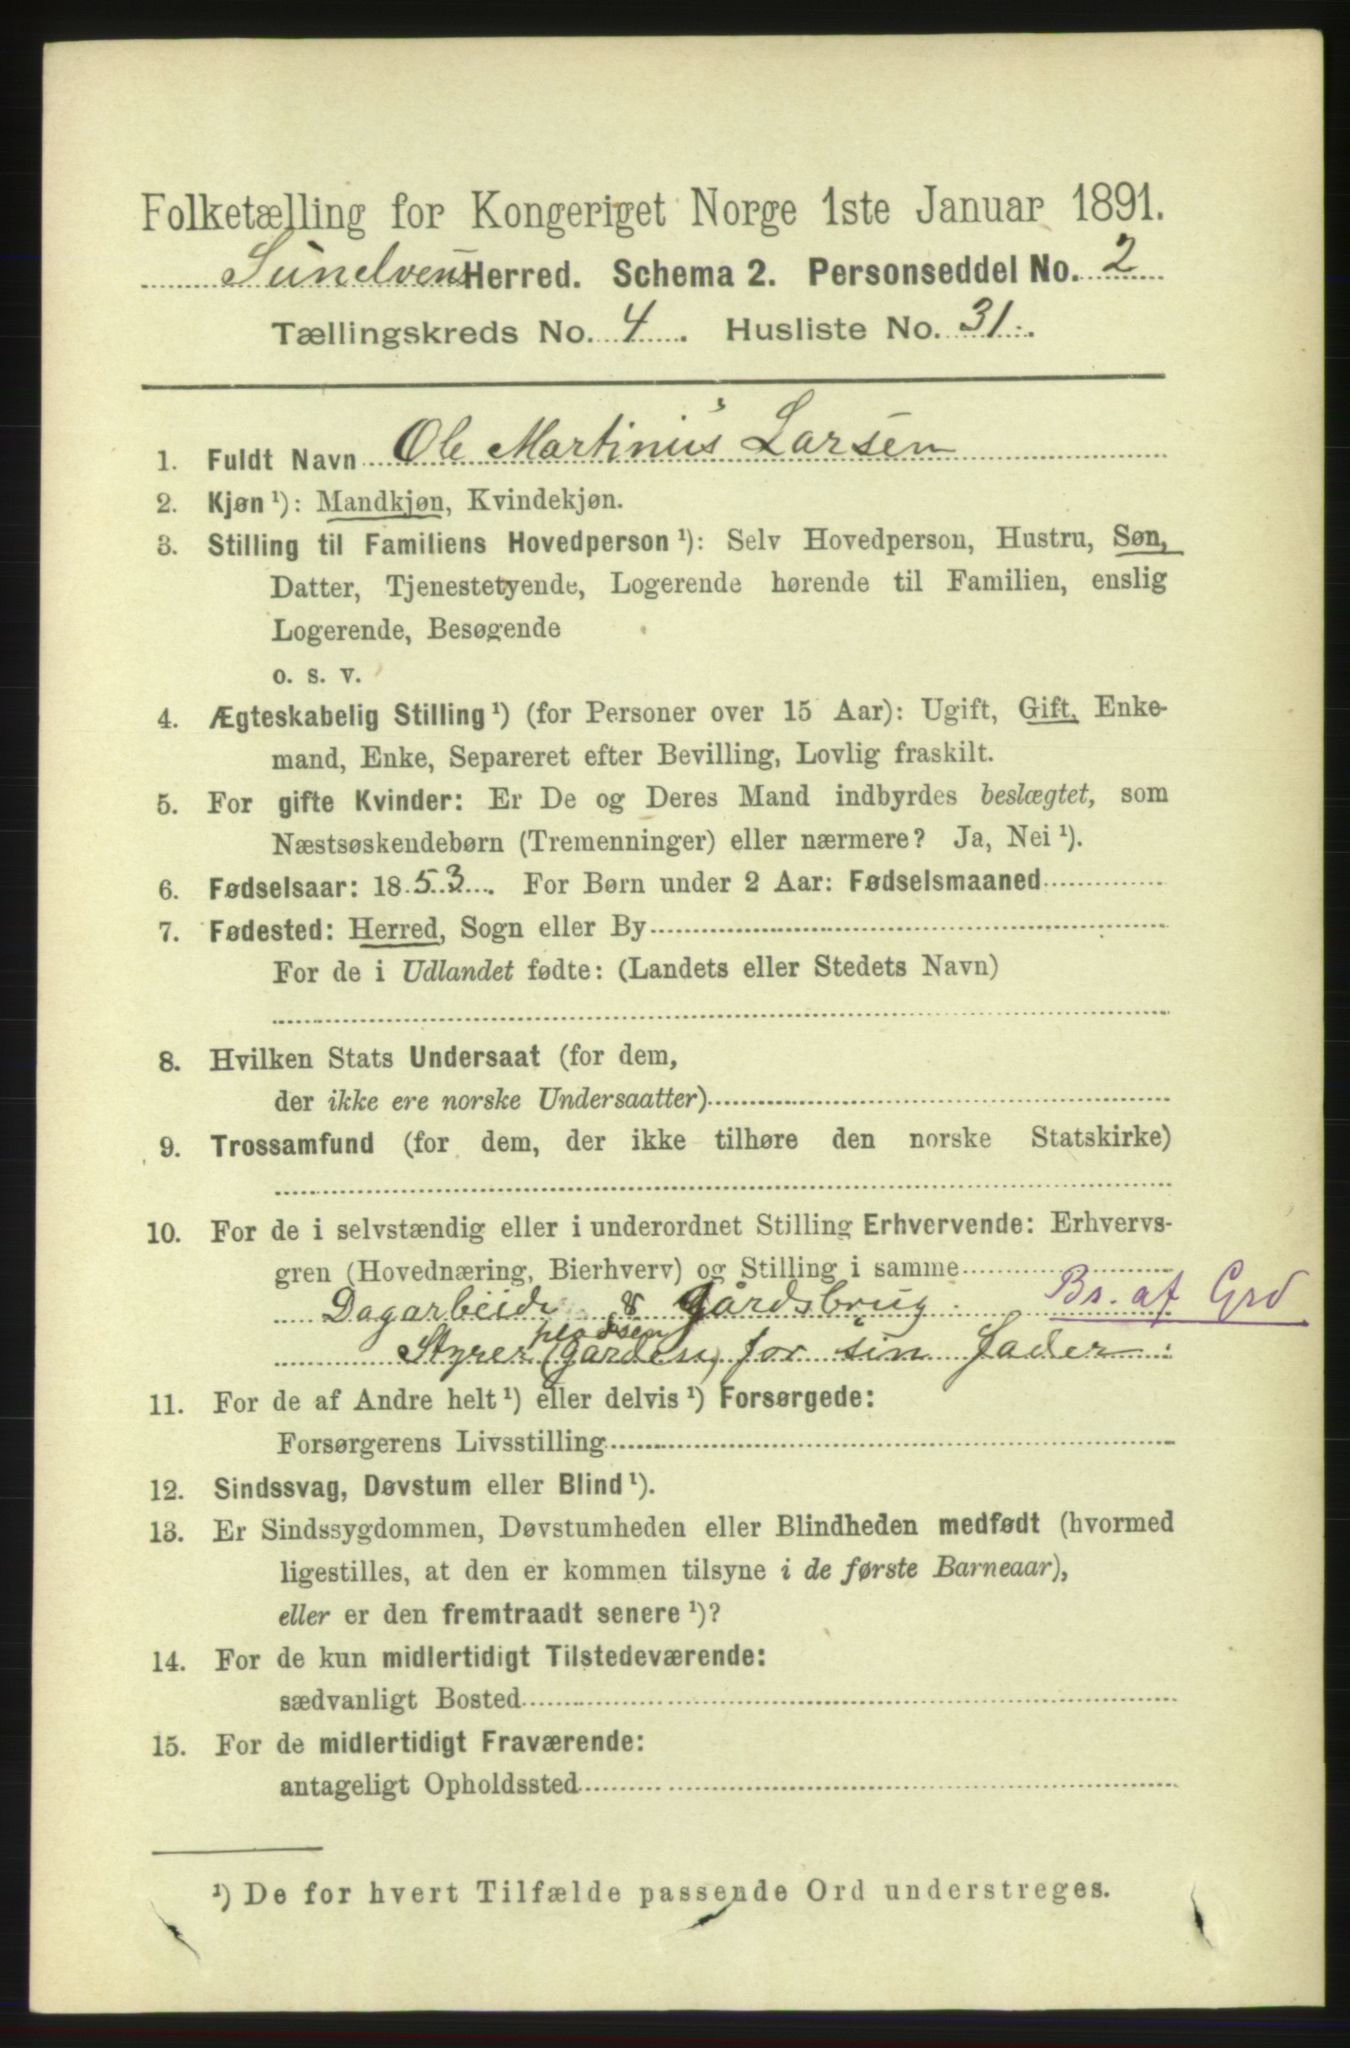 Folketælling for Kongeriget Norge 1ste Januar 1891.
Sunelvens Herred. Schema 2. Personseddel No. 2
Tællingskreds No. 4. Husliste No. 31.
1. Fuldt Navn Ole Martinius Larsen
2. Kjøn¹): Mandkjøn, Kvindekjøn.
3. Stilling til Familiens Hovedperson¹): Selv Hovedperson, Hustru, Søn,
Datter, Tjenestetyende, Logerende hørende til Familien, enslig
Logerende, Besøgende
o. s. v.
4. Ægteskabelig Stilling¹) (for Personer over 15 Aar): Ugift, Gift, Enke-
mand, Enke, Separeret efter Bevilling, Lovlig fraskilt.
5. For gifte Kvinder: Er De og Deres Mand indbyrdes beslægtet, som
Næstsøskendebørn (Tremenninger) eller nærmere? Ja, Nei¹).
6. Fødselsaar: 1853. For Børn under 2 Aar: Fødselsmaaned
7. Fødested: Herred, Sogn eller By
For de i Udlandet fødte: (Landets eller Stedets Navn)
8. Hvilken Stats Undersaat (for dem,
der ikke ere norske Undersaatter)
9. Trossamfund (for dem, der ikke tilhøre den norske Statskirke)
10. For de i selvstændig eller i underordnet Stilling Erhvervende: Erhvervs-
gren (Hovednæring, Bierhverv) og Stilling i samme
Dagarbeide & Gårdsbrug. Bs. af Grd
pladsen
Styrer (gården) for sin Fader.
11. For de af Andre helt¹) eller delvis¹) Forsørgede:
Forsørgerens Livsstilling
12. Sindssvag, Døvstum eller Blind¹).
13. Er Sindssygdommen, Døvstumheden eller Blindheden medfødt (hvormed
ligestilles, at den er kommen tilsyne i de første Barneaar),
eller er den fremtraadt senere¹)?
14. For de kun midlertidigt Tilstedeværende:
sædvanligt Bosted
15. For de midlertidigt Fraværende:
antageligt Opholdssted
¹) De for hvert Tilfælde passende Ord understreges.